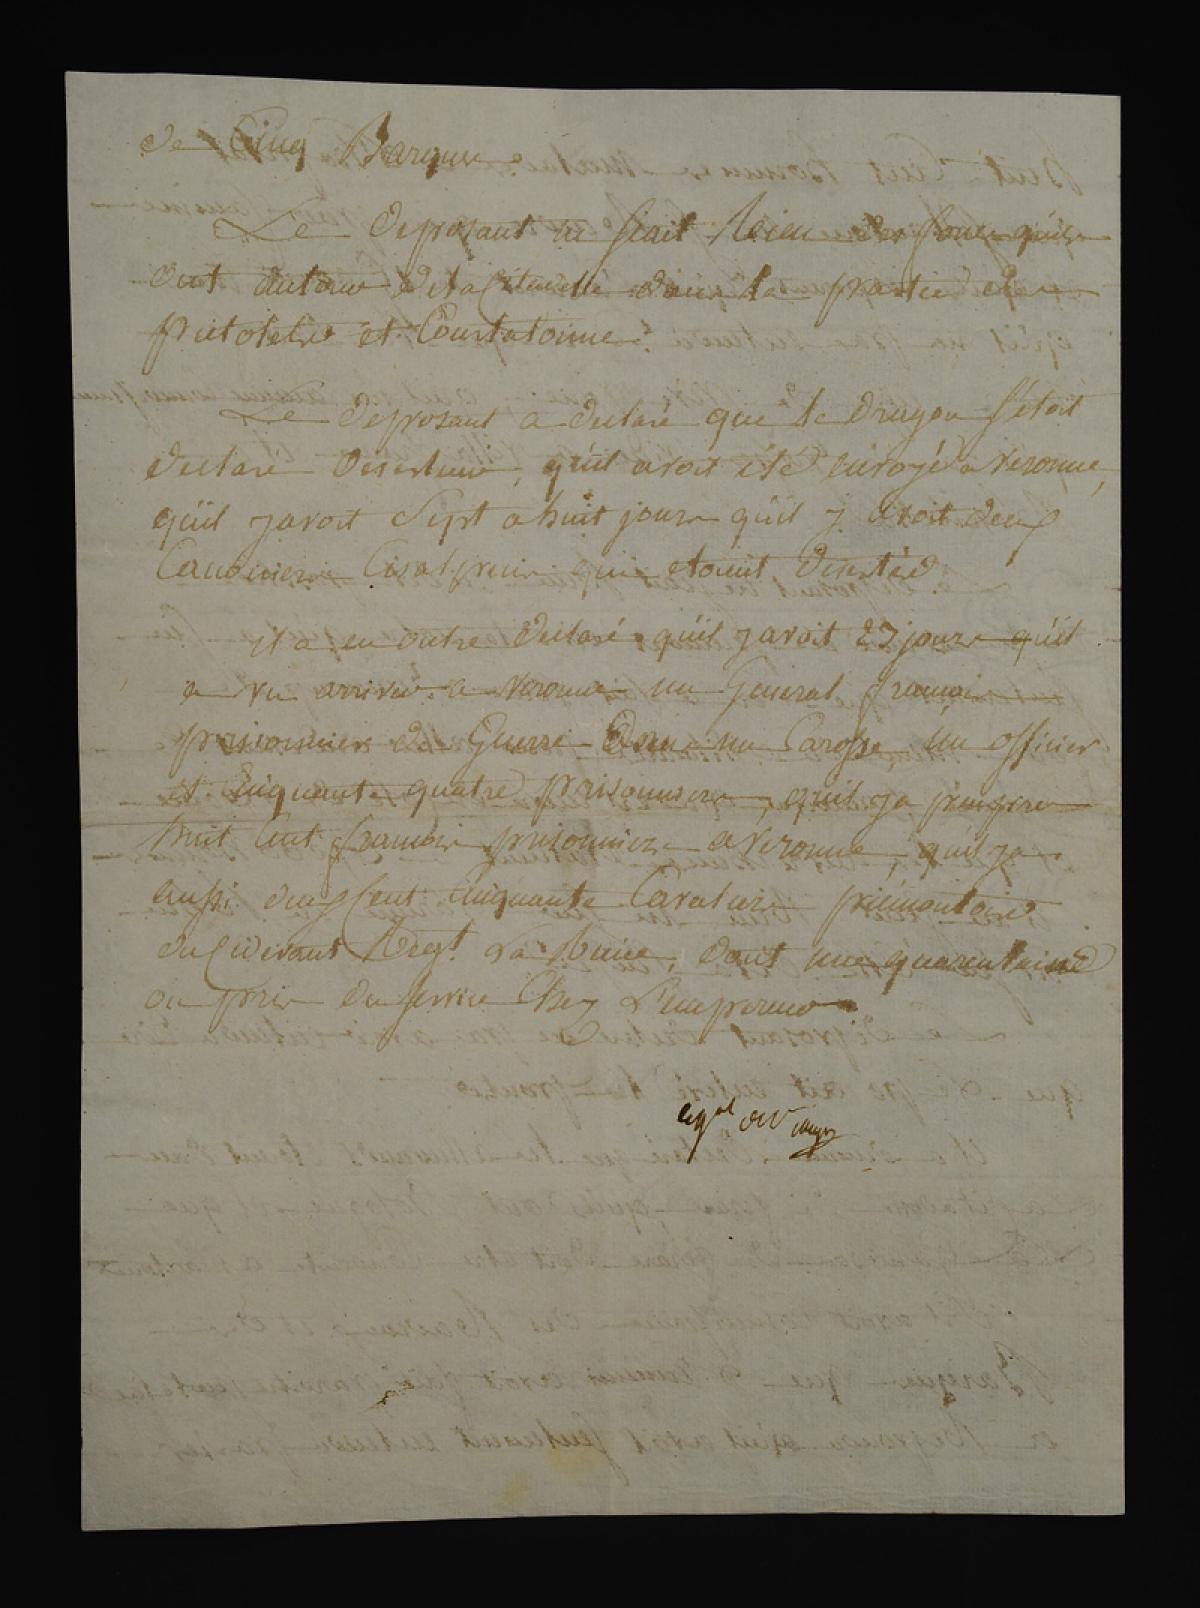 de Cinq Barques
Le deposant ne scait Rien des forces qu'ils
ont autour de la Citadelle dans la partie de
pietole et Courtatonne.
Le deposant a declaré que le dragon s'etoit
declaré deserteur, qu'il avoit eté envoyé a Veronne,
qu'il y avoit Sept a huit jours qu'il y avoit deux
Canoniers Cisalpins qui etoient desertés
il a en outre declaré qu'il y avoit 27 jours qu'il
a vu arriver a Veronne un General françois
prisonnier de Guerre dans un Carosse, un officier
et Cinquante quatre prisonniers, qu'il y a
huit Cent françois prisonniers a Veronne, qu'il y a
aussi deux Cent Cinquante Cavaliers piemontois
du Cidevant Regt. La Reine, dont une quarentaine
ou pris du service Chez L'empereur